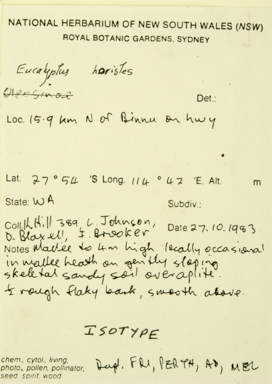 NATIONAL HERBARIUM OF NEW SOUTH WALES (NSW)
ROYAL BOTANIC GARDENS, SYDNEY
Eucalyptus horistes
Det.:
Loc. 15.9 km N of Binnu on hwy
Lat. 27° 54 'S Long. 114° 42 'E. Alt. m
State: WA Subdiv.:
Coll. K. Hill 389, L. Johnson, Date 27.10.1983
D. Blaxell, I. Brooker
Notes Mallee to 4m high locally occasional
in mallee heath on gently sloping
skeletal sandy soil over aplite.
½ rough flaky bark, smooth above.
ISOTYPE
chem., cytol., living,
photo., pollen, pollinator,
seed, spirit, wood
Dupl. FRI, PERTH, AD, MEL